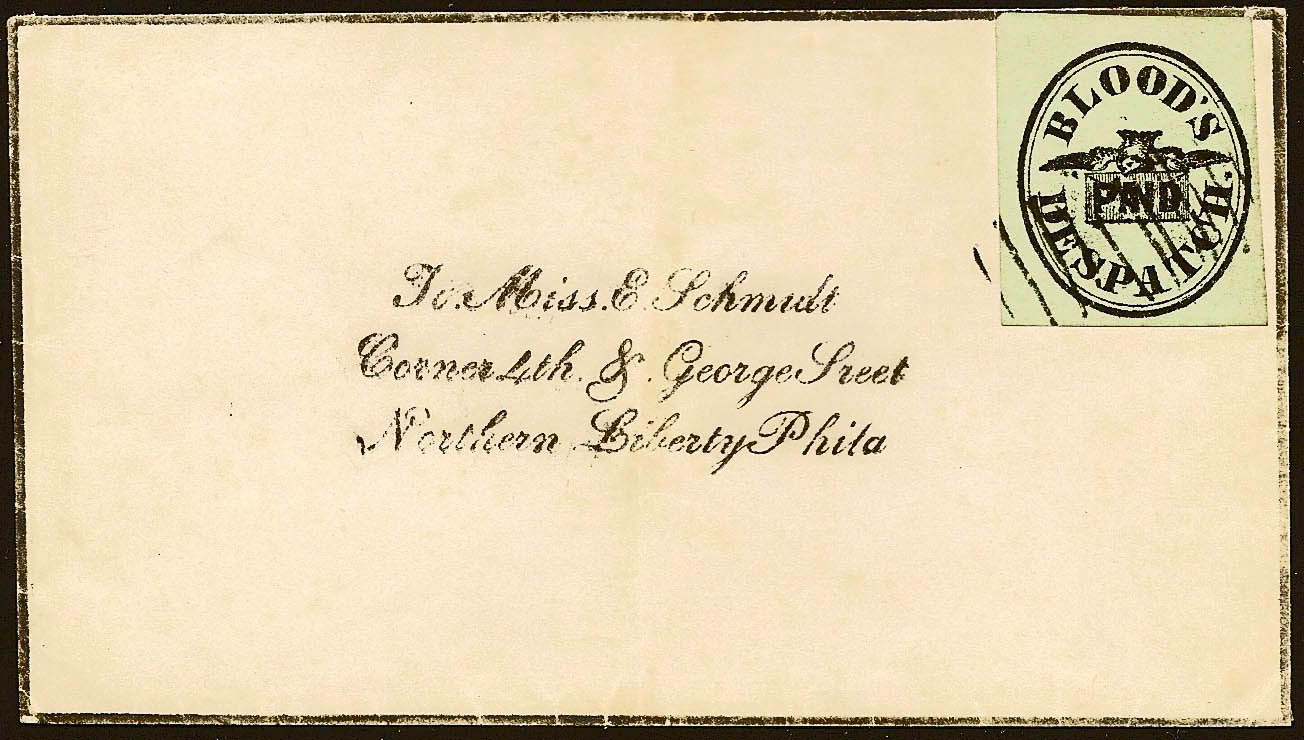 BLOOD'S
PAID
DESPATCH.
To. Miss. E. Schmidt
Corner 4th. & . George Sreet
Northern Liberty Phila